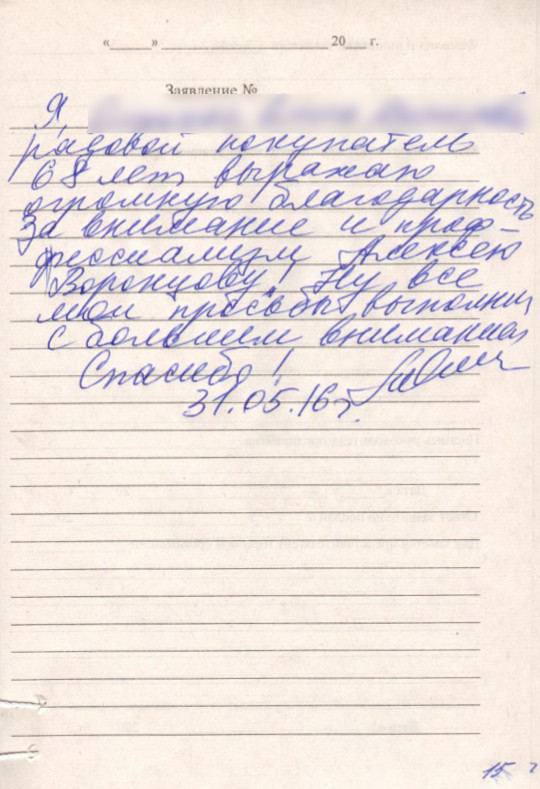 «____» ____________ 20__ г.
Заявление №
Я,
рядовой покупатель
68 лет выражаю
огромную благодарность
За внимание и проф-
фессиамизм Алексею
Воронцову! Ну все
мои просьбы выполнил
с большим вниманием
Спасибо!
31.05.16г.
15